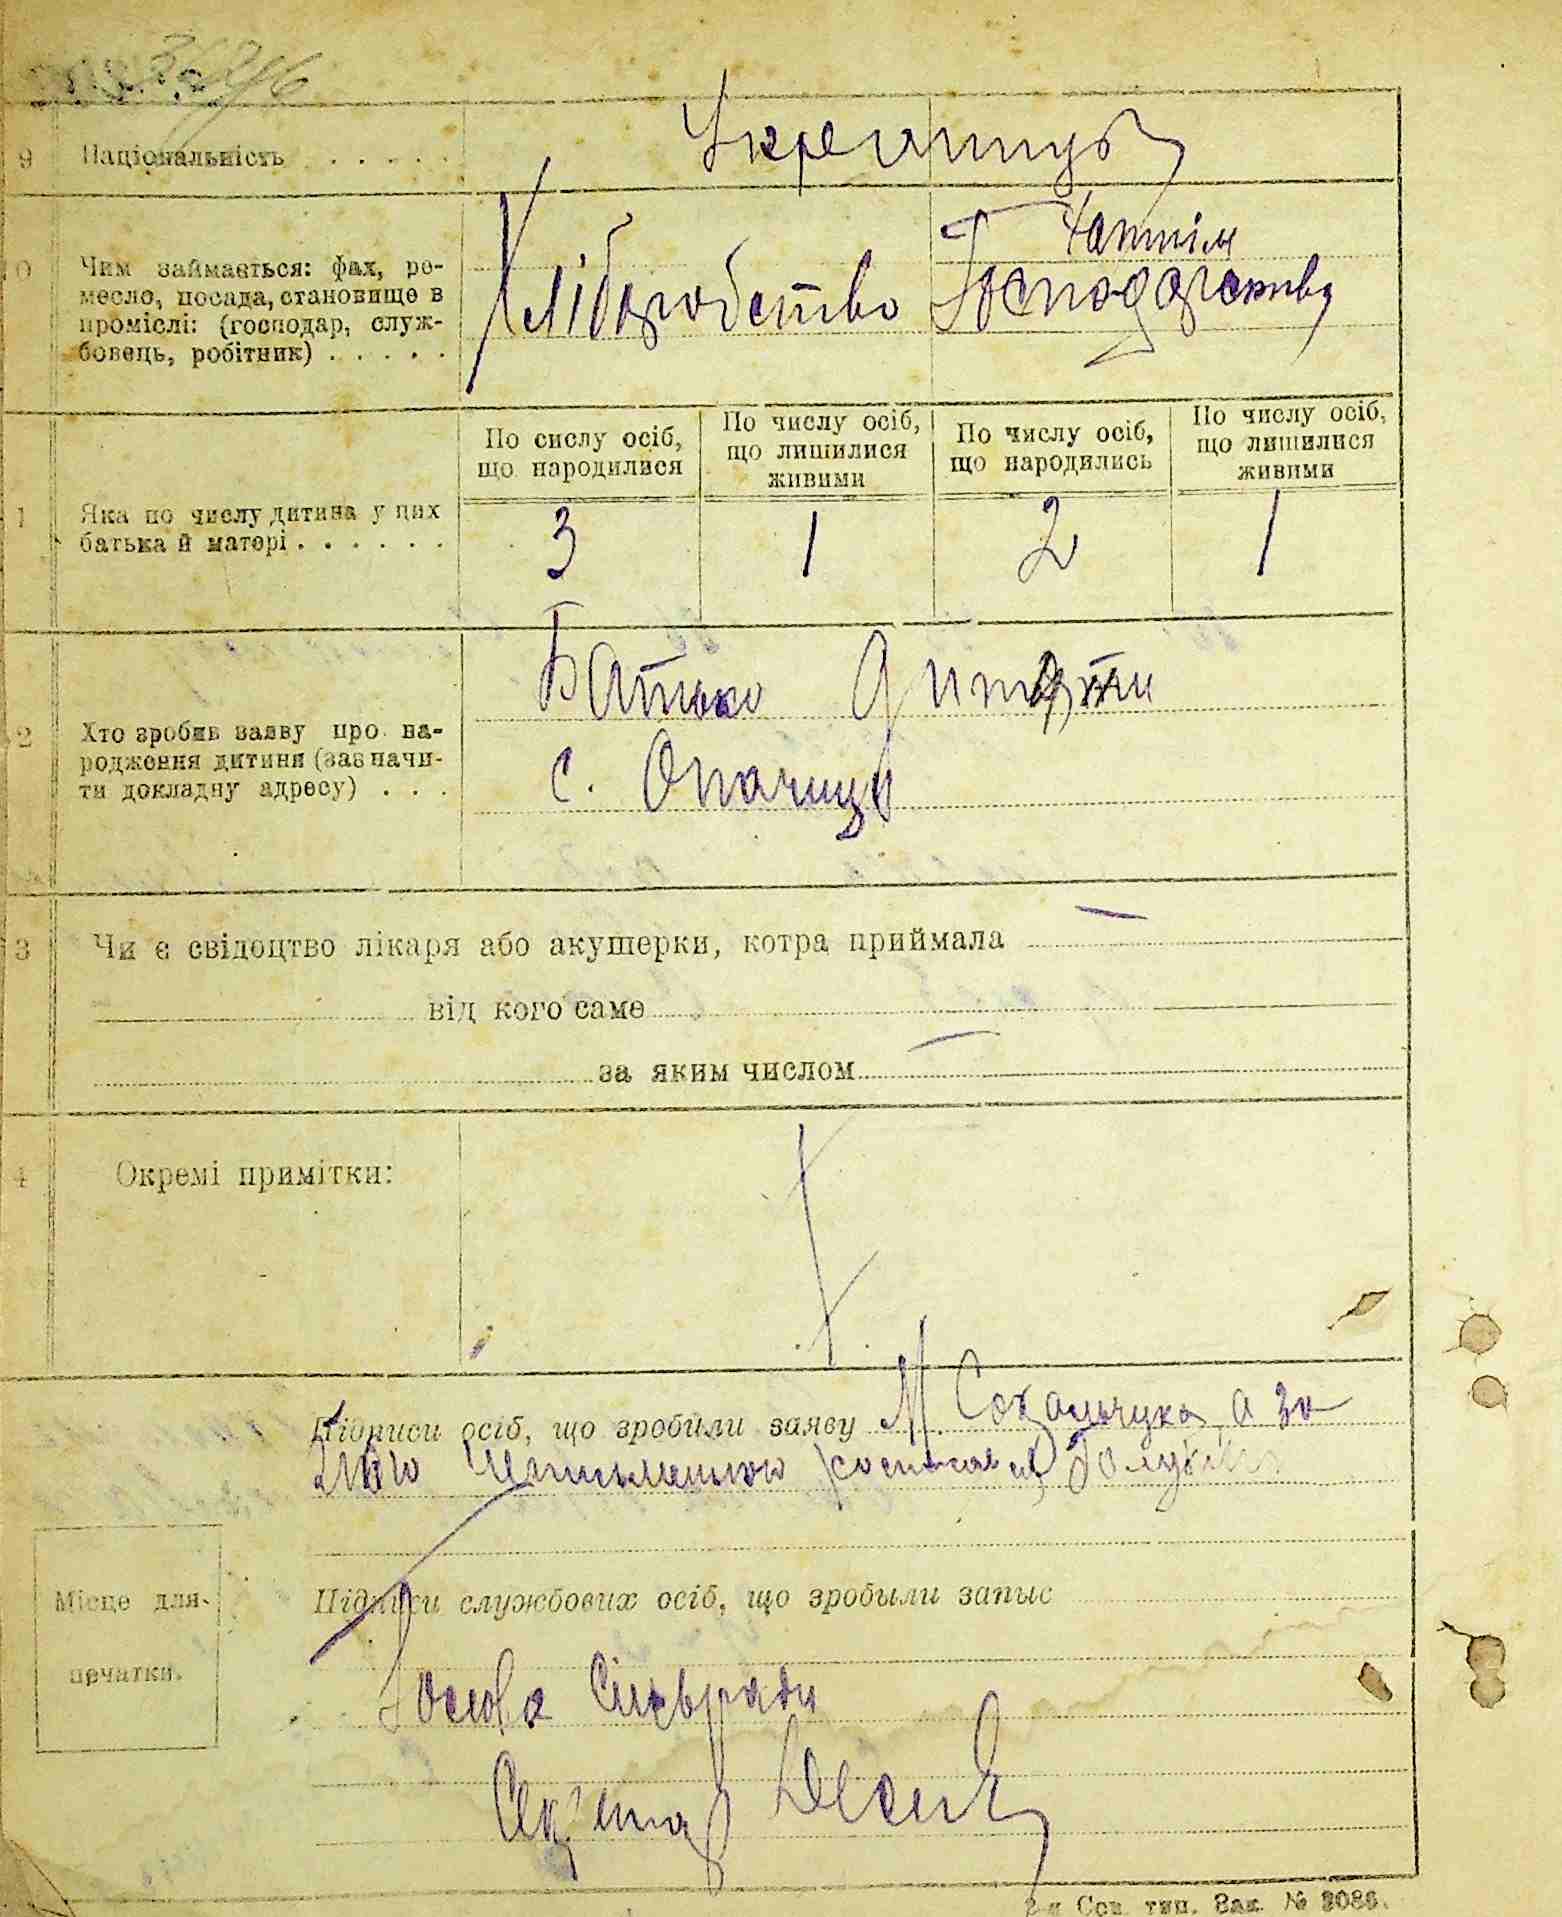 9 Національність . . . . .
Українцув
10 Чим займається: фах, ре-
месло, посада, становище в
проміслі: (господар, служ-
бовець, робітник) . . . . .
Хліборобство
Господарство
По сислу осіб,
що народилися
По числу осіб,
що лишилися
живими
По числу осіб,
що народились
По числу осіб,
що лишилися
живими
1 Яка по числу дитина у цих
батька й матері . . . . . .
3 1 2 1
2 Хто зробив заяву про на-
родження дитини (зазначи-
ти докладну адресу) . . .
Батько дитяти
с. Опачиці
3 Чи є свідоцтво лікаря або акушерки, котра приймала —
від кого саме
за яким числом —
4 Окремі примітки:
Підписи осіб, що зробили заяву М Сокальчука, а за
його неписьменного росписався
Місце для
печатки.
Підписи службових осіб, що зробыли запыс
Голова Сільради
Секретар
2-я Сов. тип. Зак. № 3086.